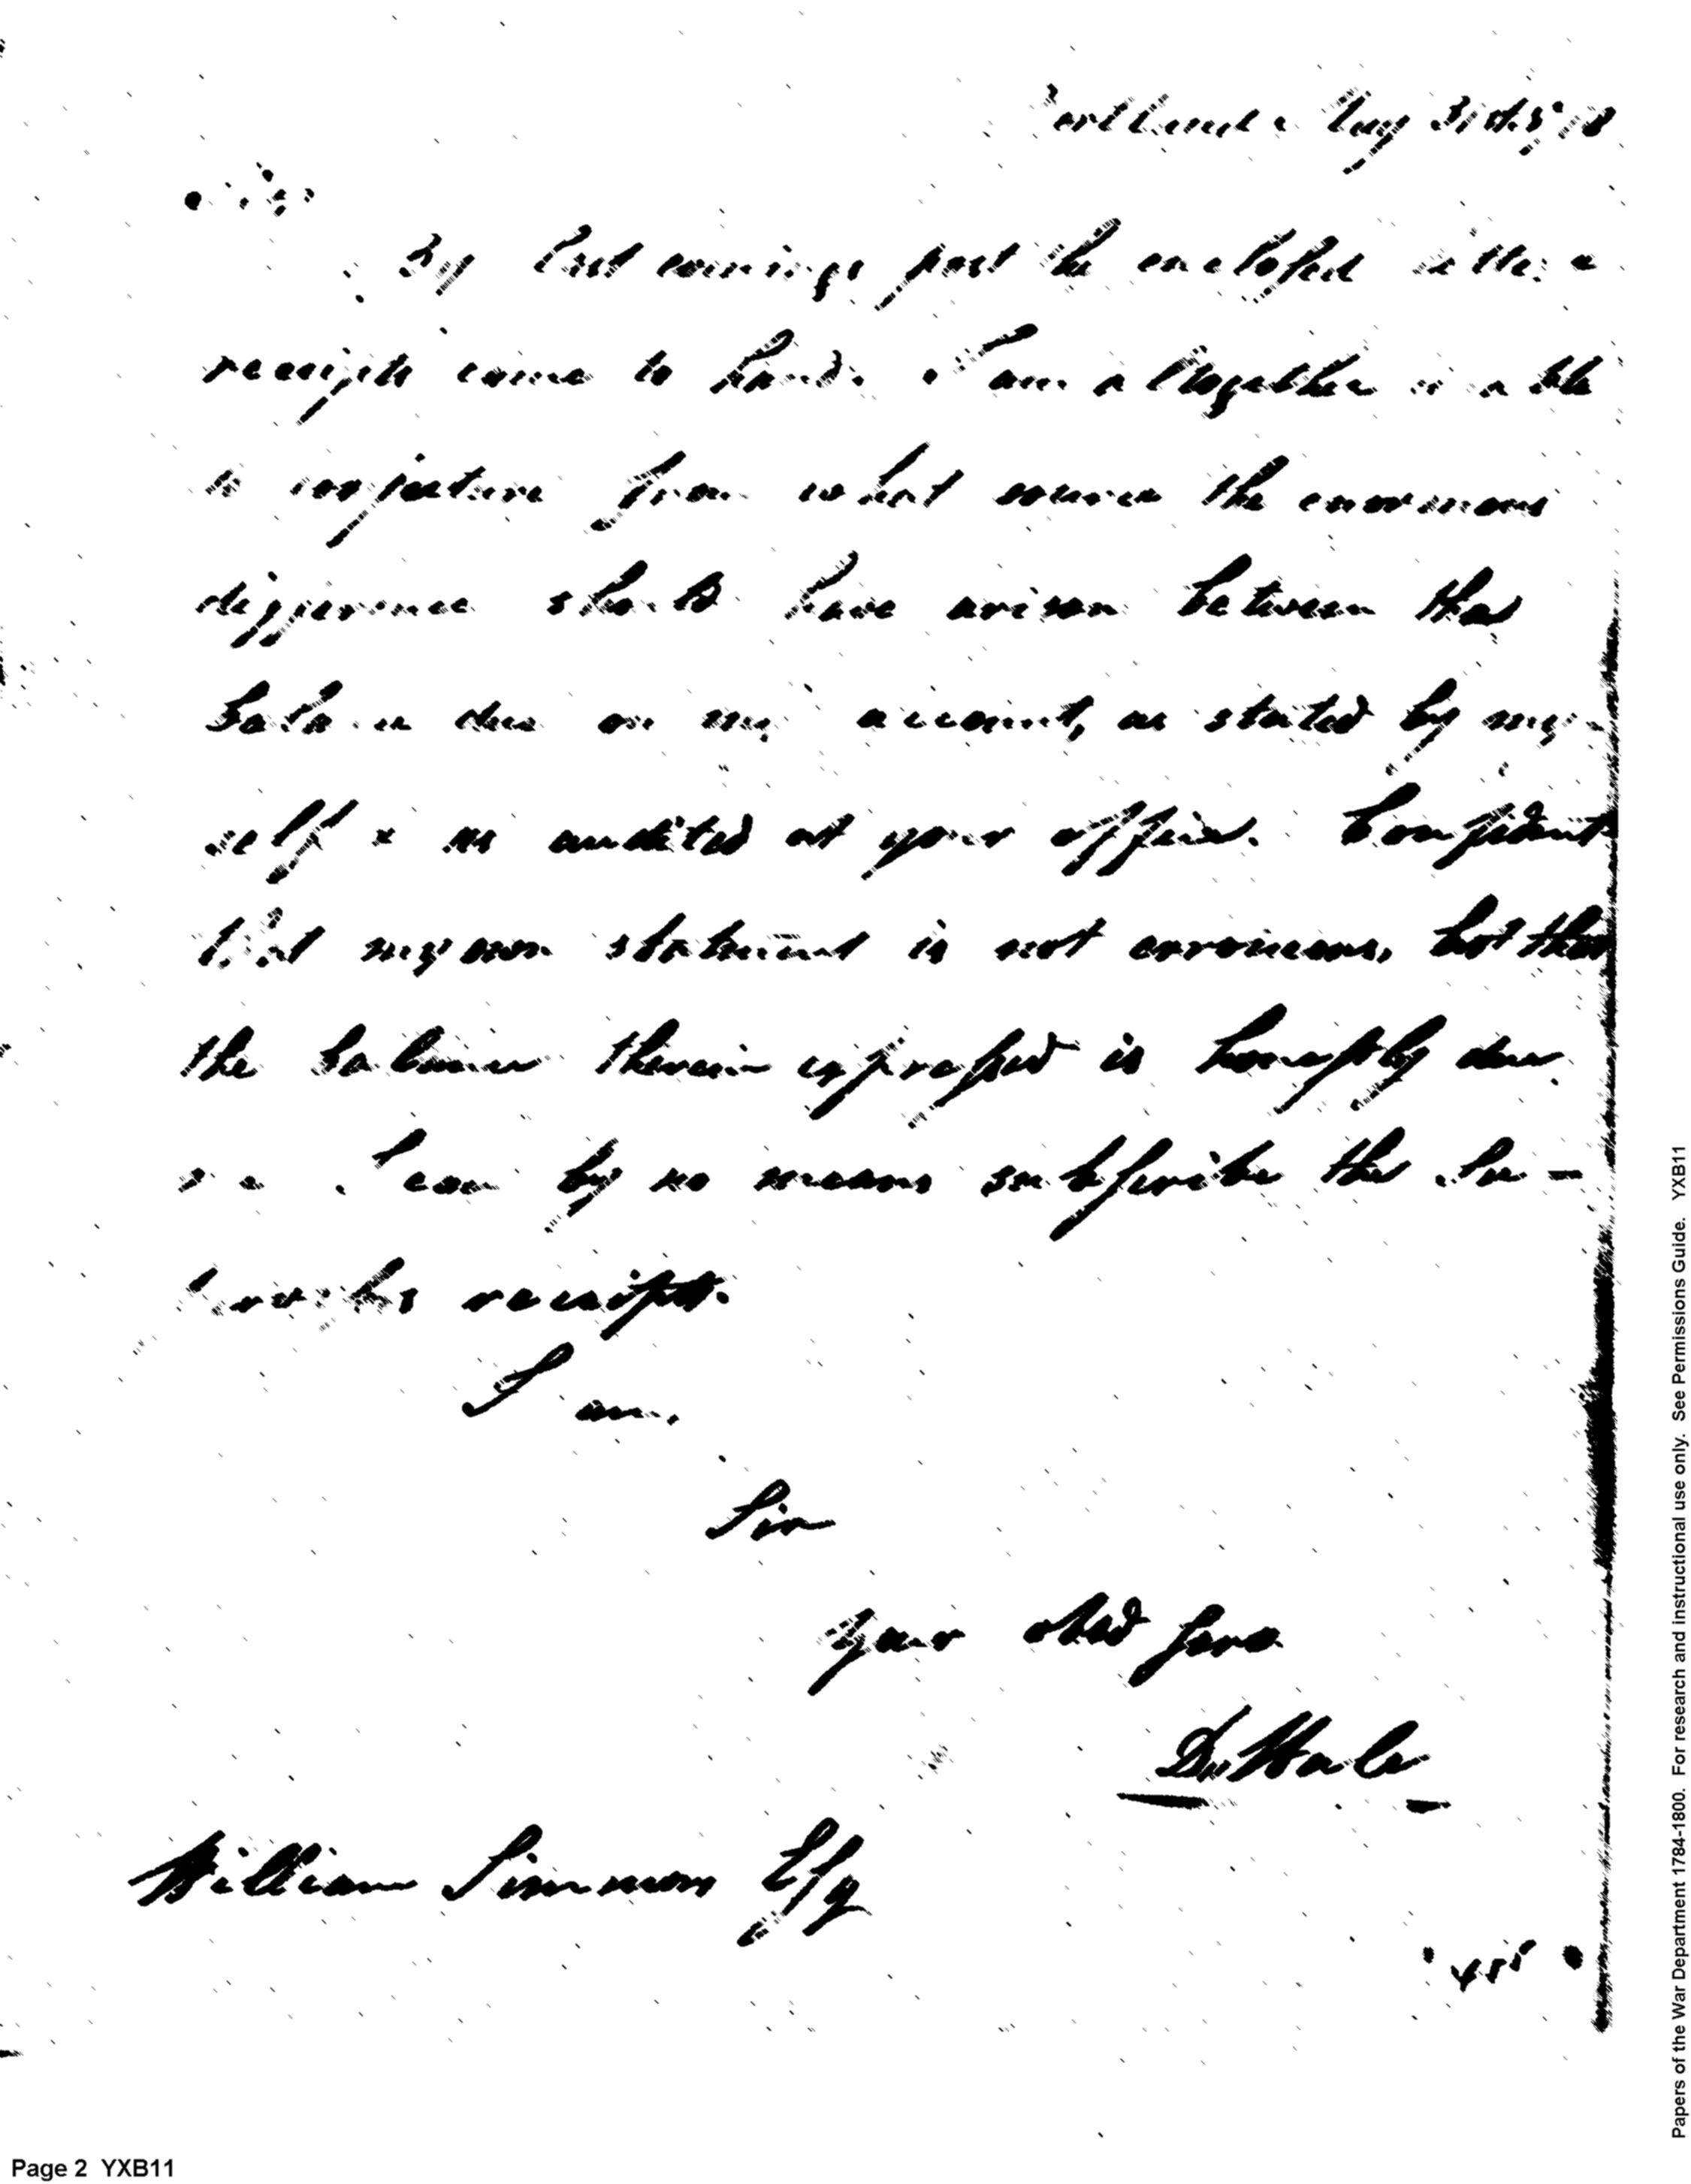 Portland May 31st
Sir
By last evenings post the enclosed letter &
receipts came to hand. I am altogether unable
to conjecture from what source the enormous
difference should have arisen between the
balance due on my account, as stated by my-
self & as audited at your office. Confident
that my own statement is not erroneous, but that
the balance therein expressed is honestly due
me. I can by no means subscribe the
receipt.
I am,
Sir
your obed serv
D. Hale
William Simmons Esq
Papers of the War Department 1784-1800. For research and instructional use only. See Permissions Guide. YXB11
Page 2 YXB11